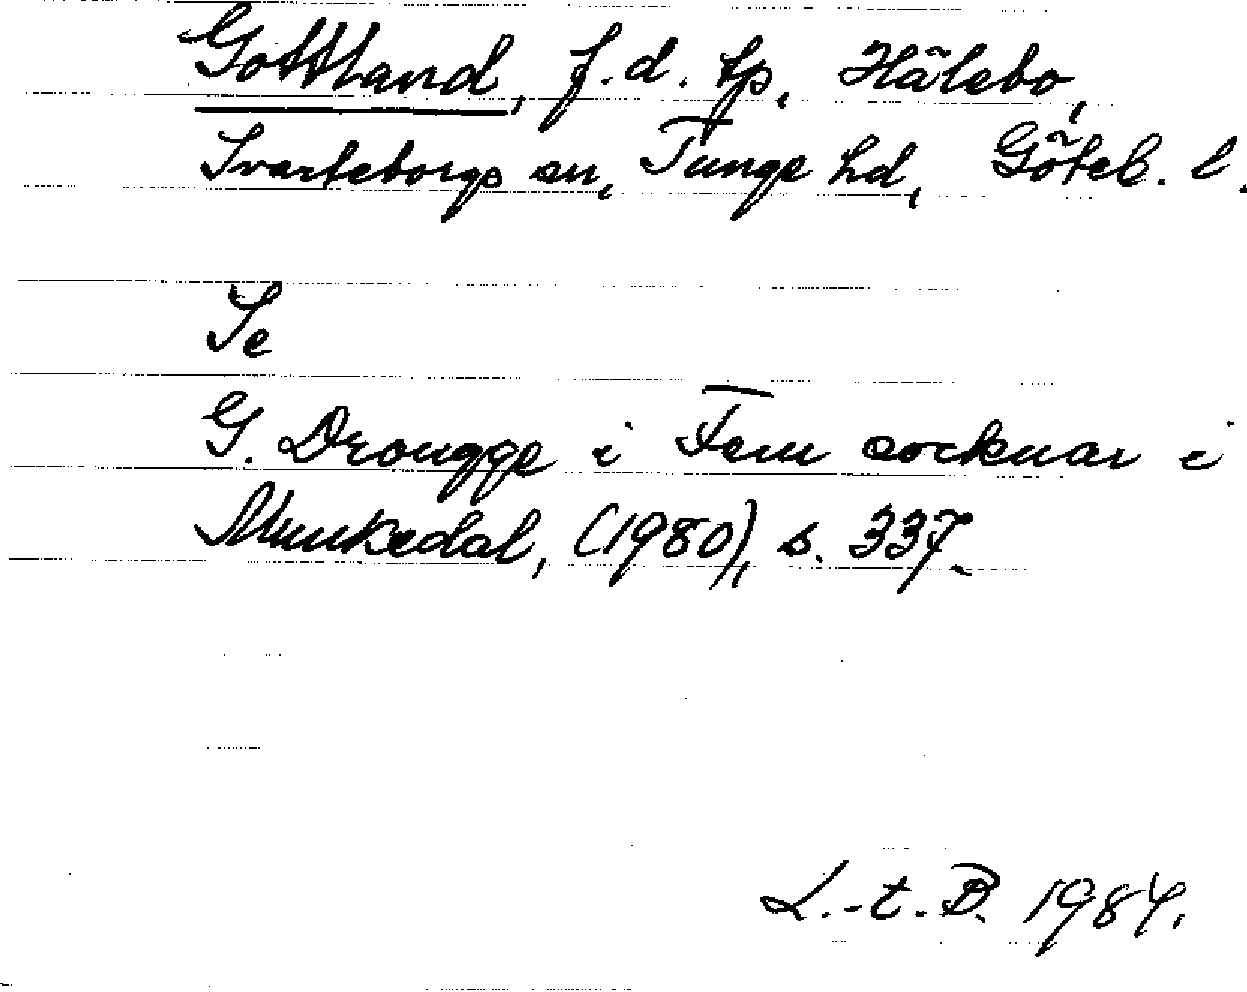 Gottland, f.d. tp, Hålebo,
Svarteborgs sn, Tunge hd, Göteb. l.
Se
G. Drougge i Fem socknar i
Munkedal, (1980), s. 337.
L.-t. B. 1984.